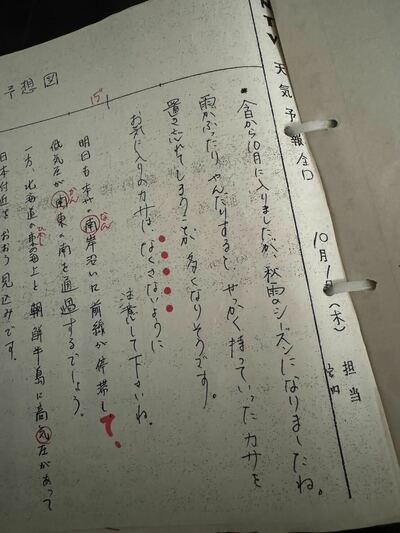 NTV 天気予報全日
10月1日(木)
担当
宮内
今日から10月に入りましたが、秋雨のシーズンになりましたね。
雨がふったり、やんだりすると、せっかく持っていったカサを
置き忘れてしまうことが多くなりそうです。
お気に入りのカサは、なくさないように
注意して下さいね。
15"
明日も本州南岸沿いに前線が停滞し、て、
なん
低気圧が関東の南を通過するでしょう。
かん
一方、北海道の東の海上と朝鮮半島に高気圧があって
日本付近をおおう見込みです。
予想図